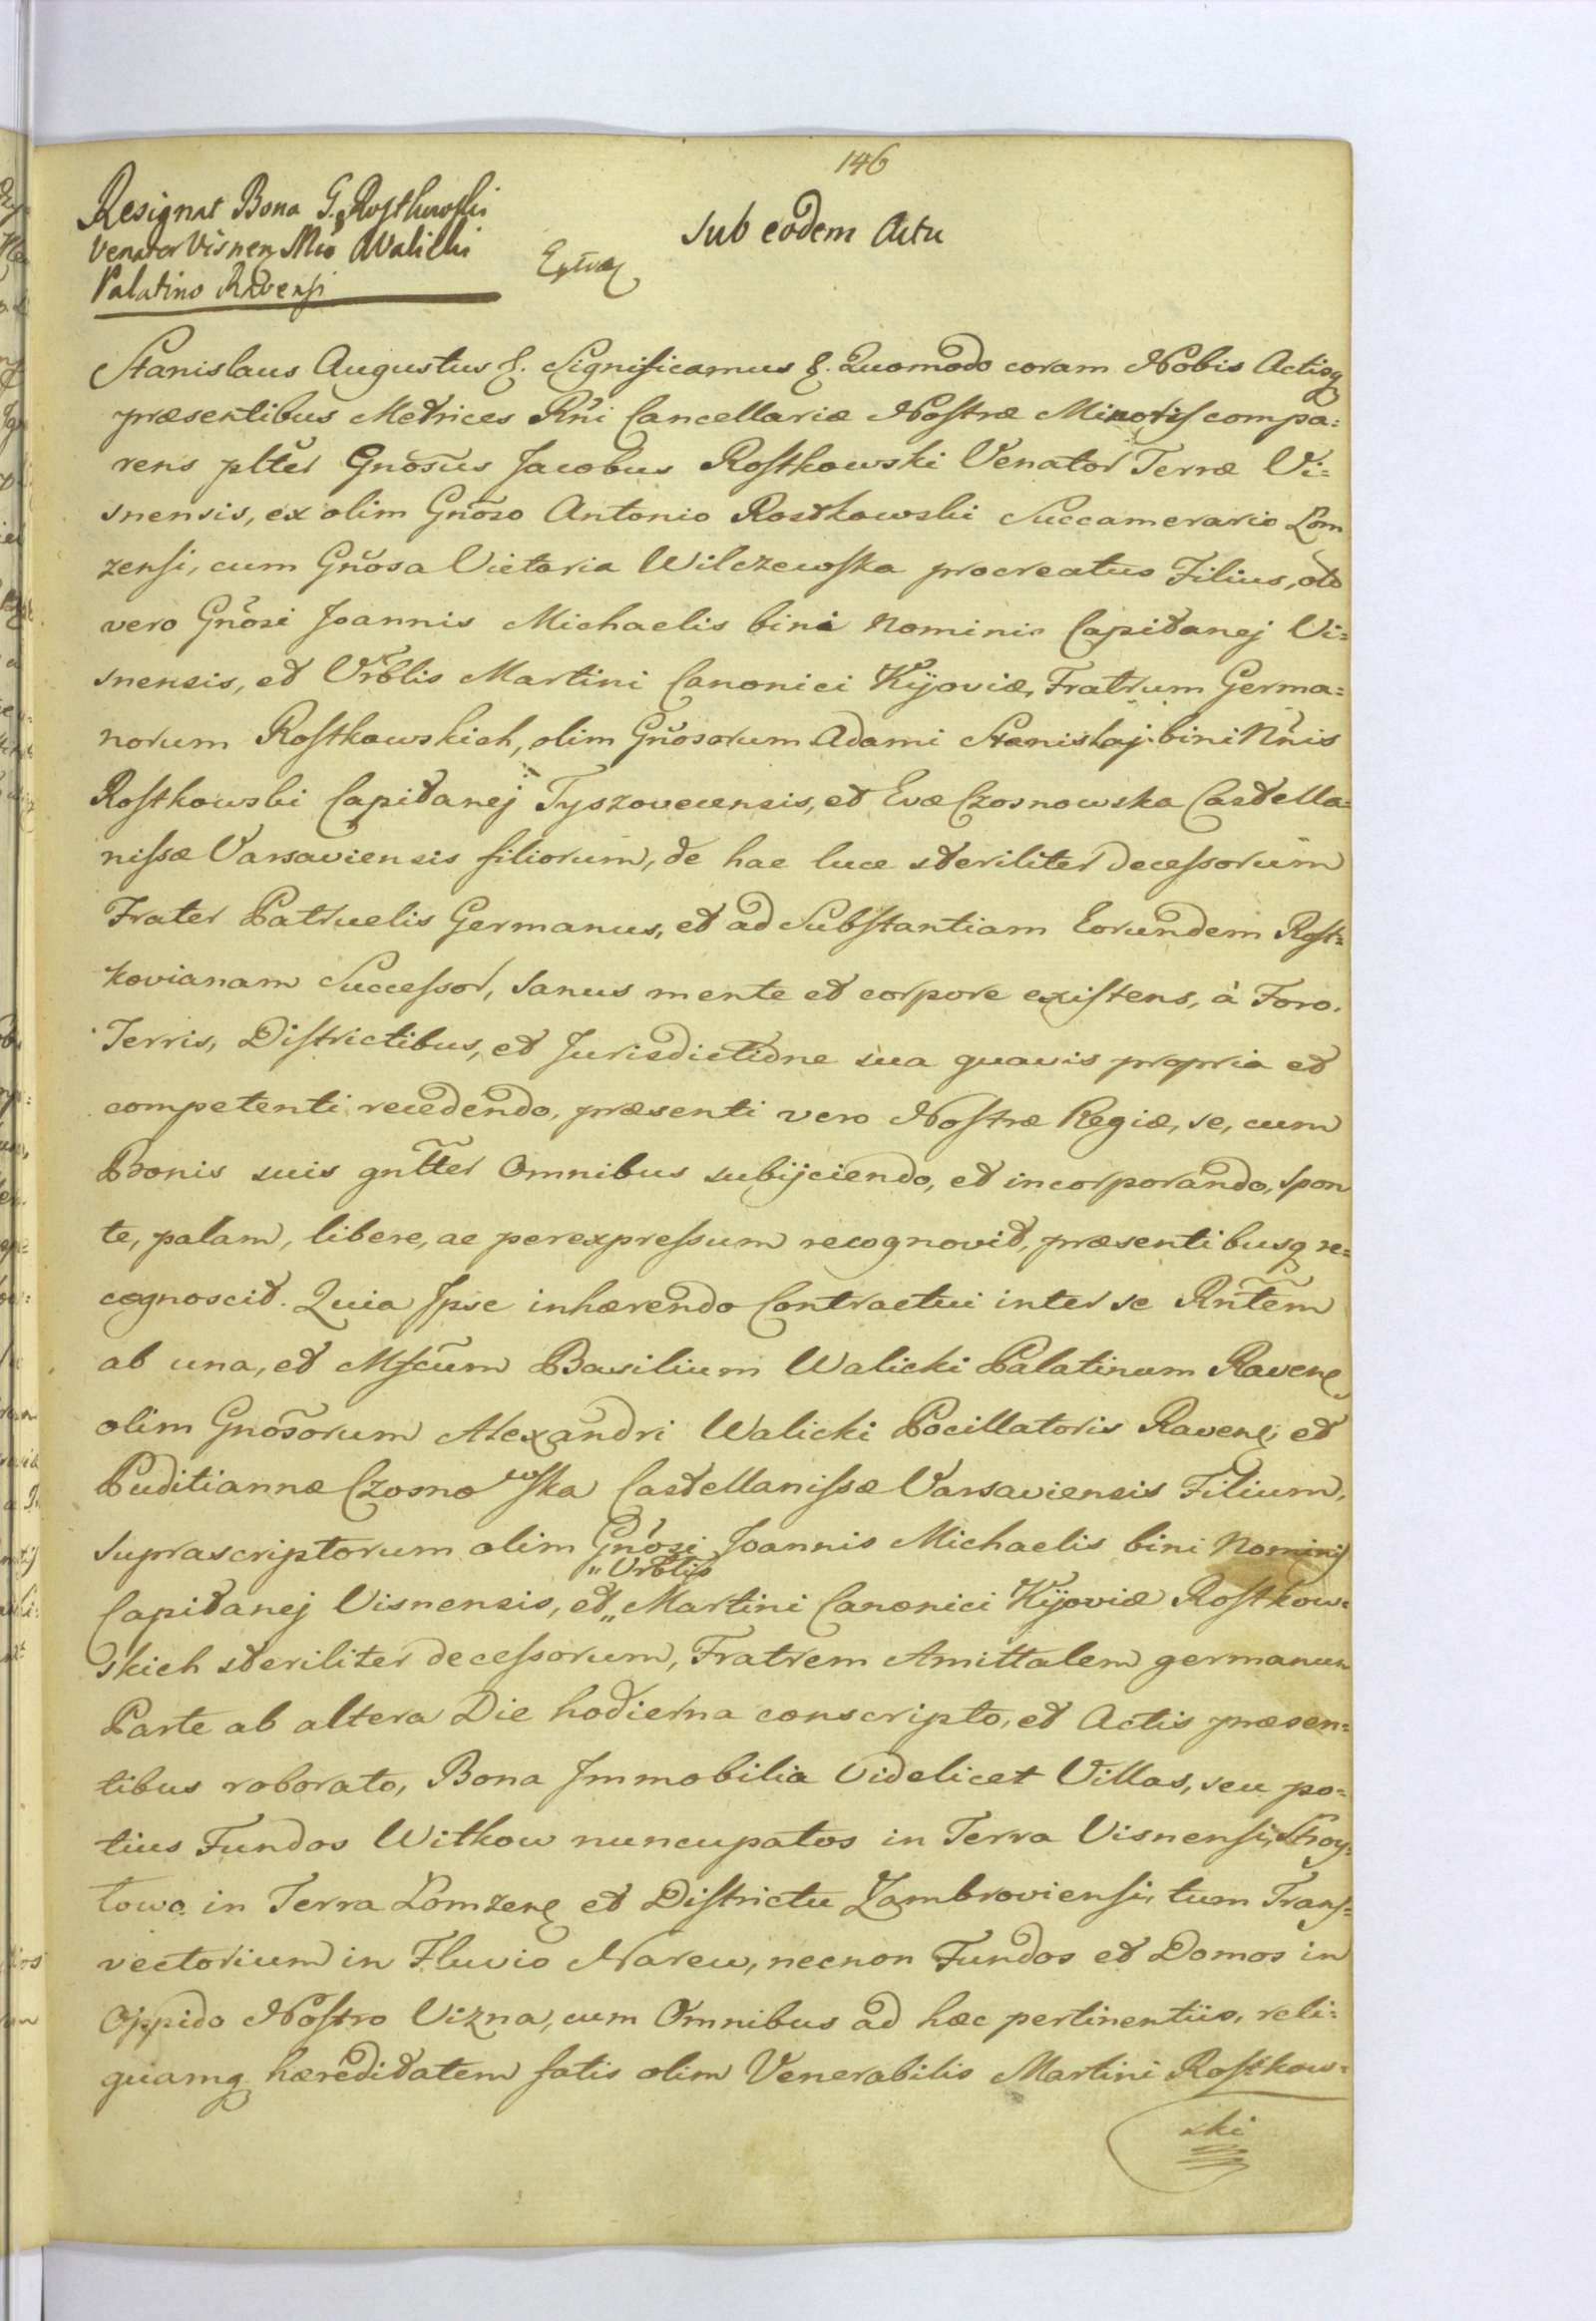 146
Resignat Bona G. Rostkowski
Venator Visnen Mco Walicki
Palatino Ravensi
Sub eodem Actu
Stanislaus Augustus &. Significamus &. Quomodo coram Nobis Actisq
præsentibus Metrices Rñi Cancellariæ Nostræ Minoris compa=
rens plter Gnosus Jacobus Rostkowski Venator Terræ Vi=
snensis, ex olim Gnoso Antonio Rostkowski Succamerario Lom
zensi, cum Gnosa Victoria Wilczewska procreatus Filius, olo
vero Gnosi Joannis Michaelis bini Nominis Capitanej Vi=
snensis, et Vrblis Martini Canonici Kijoviæ, Fratrum Germa=
norum Rostkowskich, olim Gnosorum Adami Stanislaj bini Nnis
Rostkowski Capitanej Tyszovecensis, et Evæ Czosnowska Castella=
nissæ Varsaviensis filiorum, de hac luce steriliter decessorum
Frater Patruelis Germanus, et ad Substantiam Eorundem Rost=
kovianam Successor, Sanus mente et corpore existens, à Foro,
Terris, Districtibus, et Jurisdictione sua quavis propria et
competenti recedendo, præsenti vero Nostræ Regiæ, se, cum
Bonis suis gntter Omnibus subijciendo, et incorporando, spon
te, palam, libere, ac perexpressum recognovit, præsentibusq re=
cognoscit. Quia Ipse inhærendo Contractui inter se Rntem
ab una, et Mfcum Basilium Walicki Palatinum Raven
olim Gnosorum Alexandri Walicki Pocillatoris Raven, et
Puditiannæ Czosnowska Castellanissæ Varsaviensis Filium,
suprascriptorum olim Gnosi Joannis Michaelis bini Nominis
Capitanej Visnensis, et „ Vrblis Martini Canonici Kijoviæ Rostkow=
skich steriliter decessorum, Fratrem Amittalem germanum
Parte ab altera Die hodierna conscripto, et Actis præsen=
tibus roborato, Bona Immobilia Videlicet Villas, seu po=
tius Fundos Witkow nuncupatos in Terra Visnensi,
towo in Terra Lomzen et Districtu Zambroviensi, tum Trans=
vectorium in Fluvio Narew, necnon Fundos et Domos in
Oppido Nostro Vizna, cum Omnibus ad hæc pertinentiis, reli=
quamq hæreditatem fatis olim Venerabilis Martini Rostkow=
ski